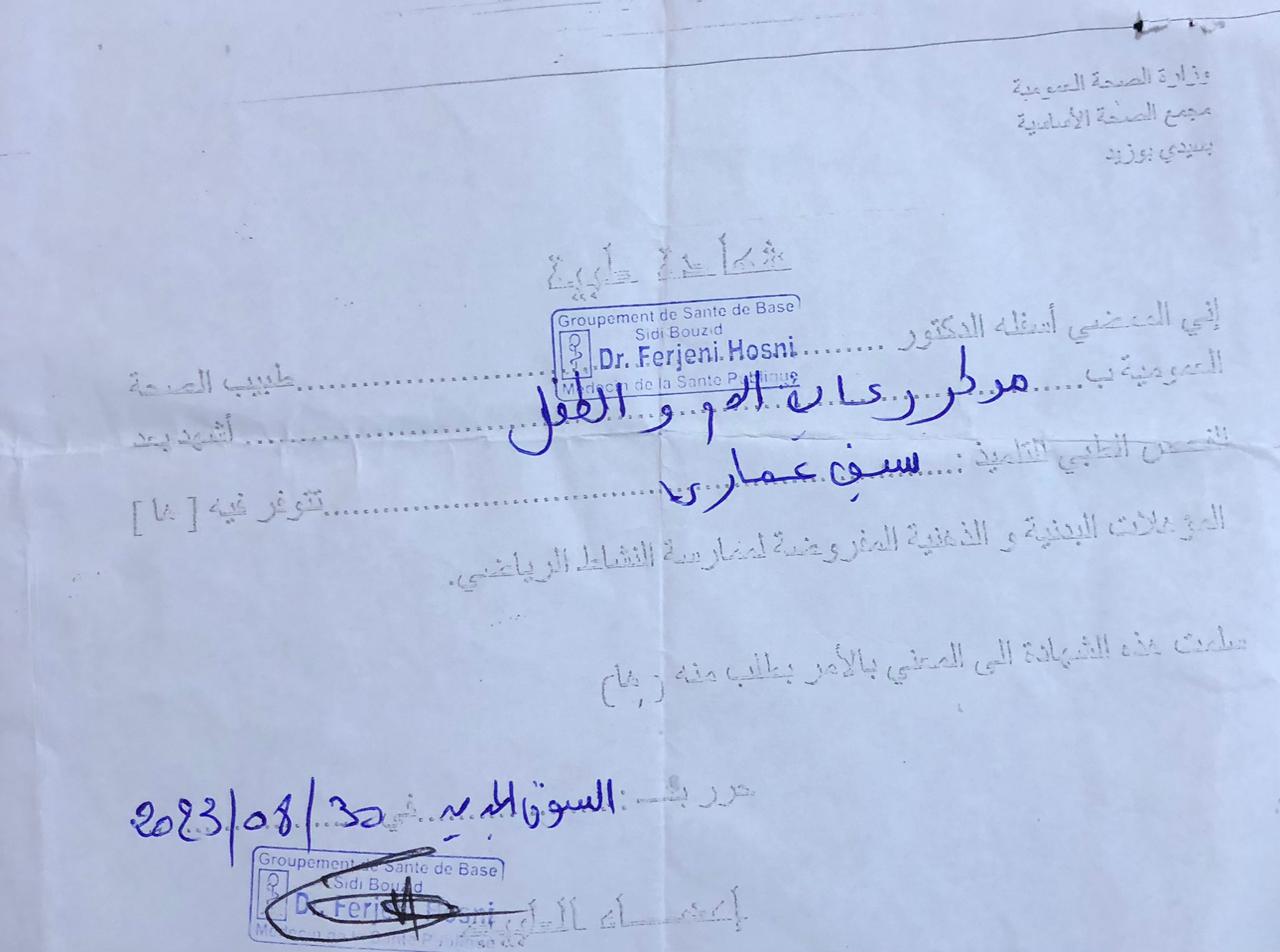 وزارة الصحة العمومية
مجمع الصحة الأساسية
بسيدي بوزيد
شهادة طبية
Groupement de Sante de Base
Sidi Bouzid
Dr. Ferjeni Hosni
Médecin de la Sante Publique
إني الممضي أسفله الدكتور ........ طبيب الصحة
العمومية ب..... مركز رعاية الأم و الطفل ..... أشهد بعد
الفحص الطبي التلميذ :.... سيف عماري ..... تتوفر فيه [ ها ]
المؤهلات البدنية و الذهنية المفروضة لممارسة النشاط الرياضي.
سلمت هذه الشهادة الى المعني بالأمر بطلب منه ( ها)
حرر بـ : السوق الجديد في 2023/08/30
إمضاء الطبيب
Groupement de Sante de Base
Sidi Bouzid
Dr. Ferjeni Hosni
Médecin de la Sante Publique